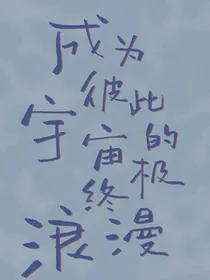 成为
彼此
宇宙的
终极
浪漫